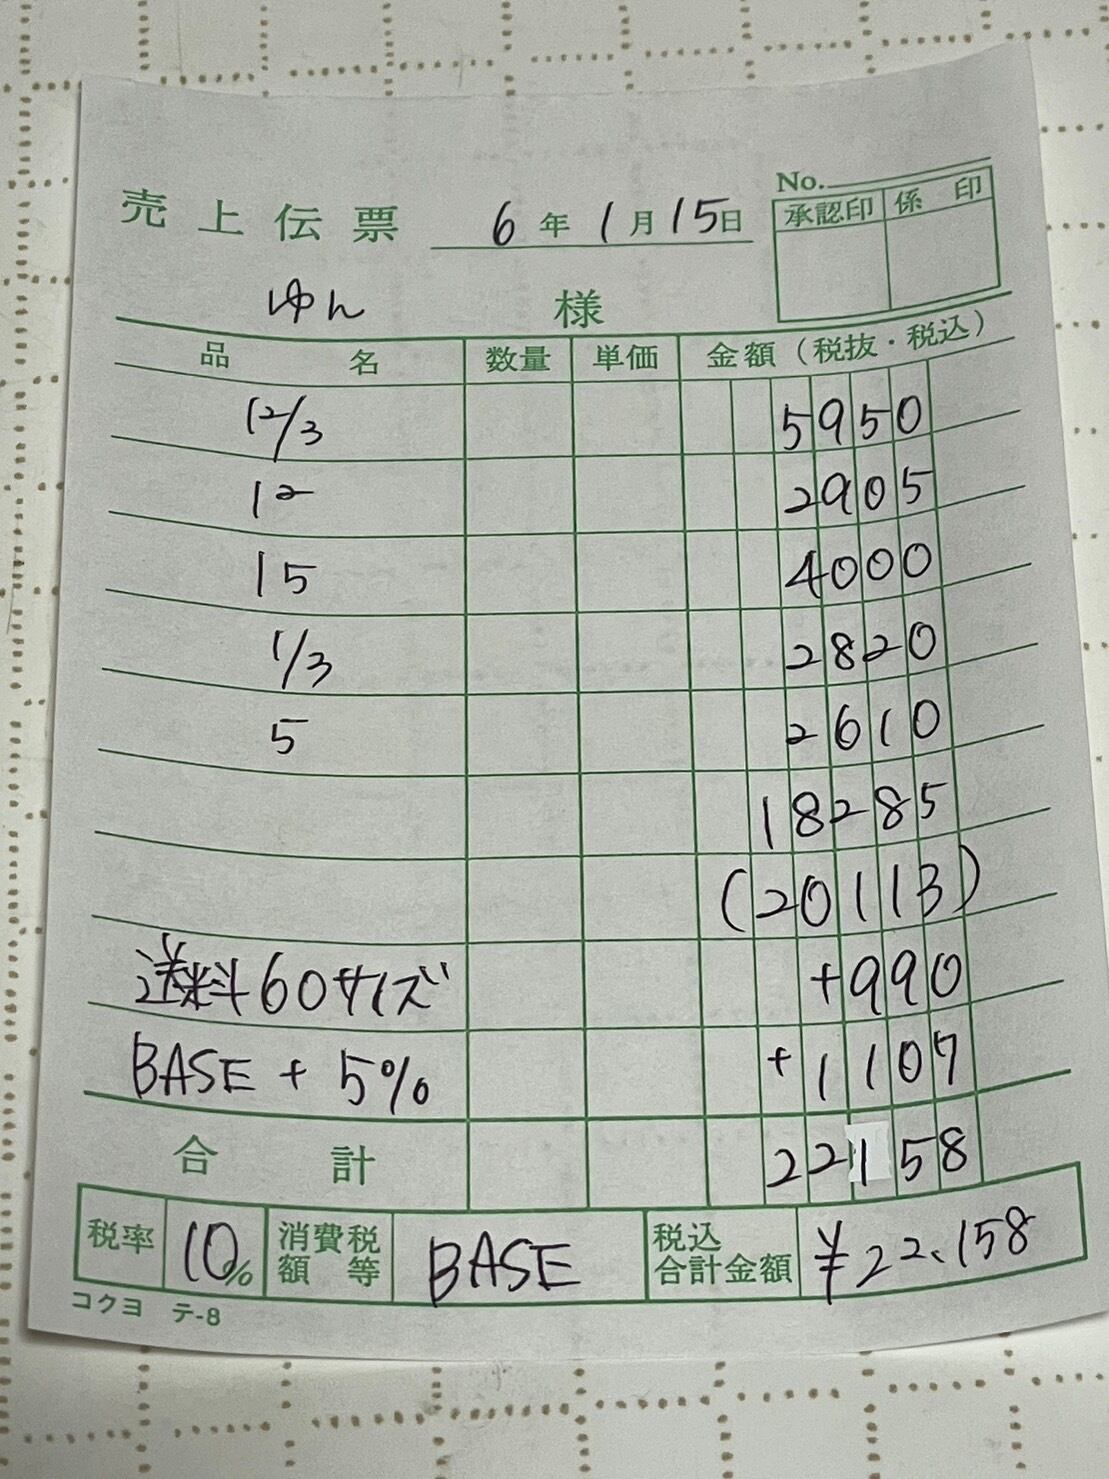 No.
売上伝票 6年1月15日
承認印 係印
ゆん 様
品名 数量 単価 金額(税抜・税込)
12/3 5950
12 2905
15 4000
1/3 2820
5 2610
18285
(20113)
送料60サイズ +990
BASE + 5% +1107
合計 22158
税率 10% 消費税額等 BASE 税込合計金額 ¥22、158
コクヨ テ-8